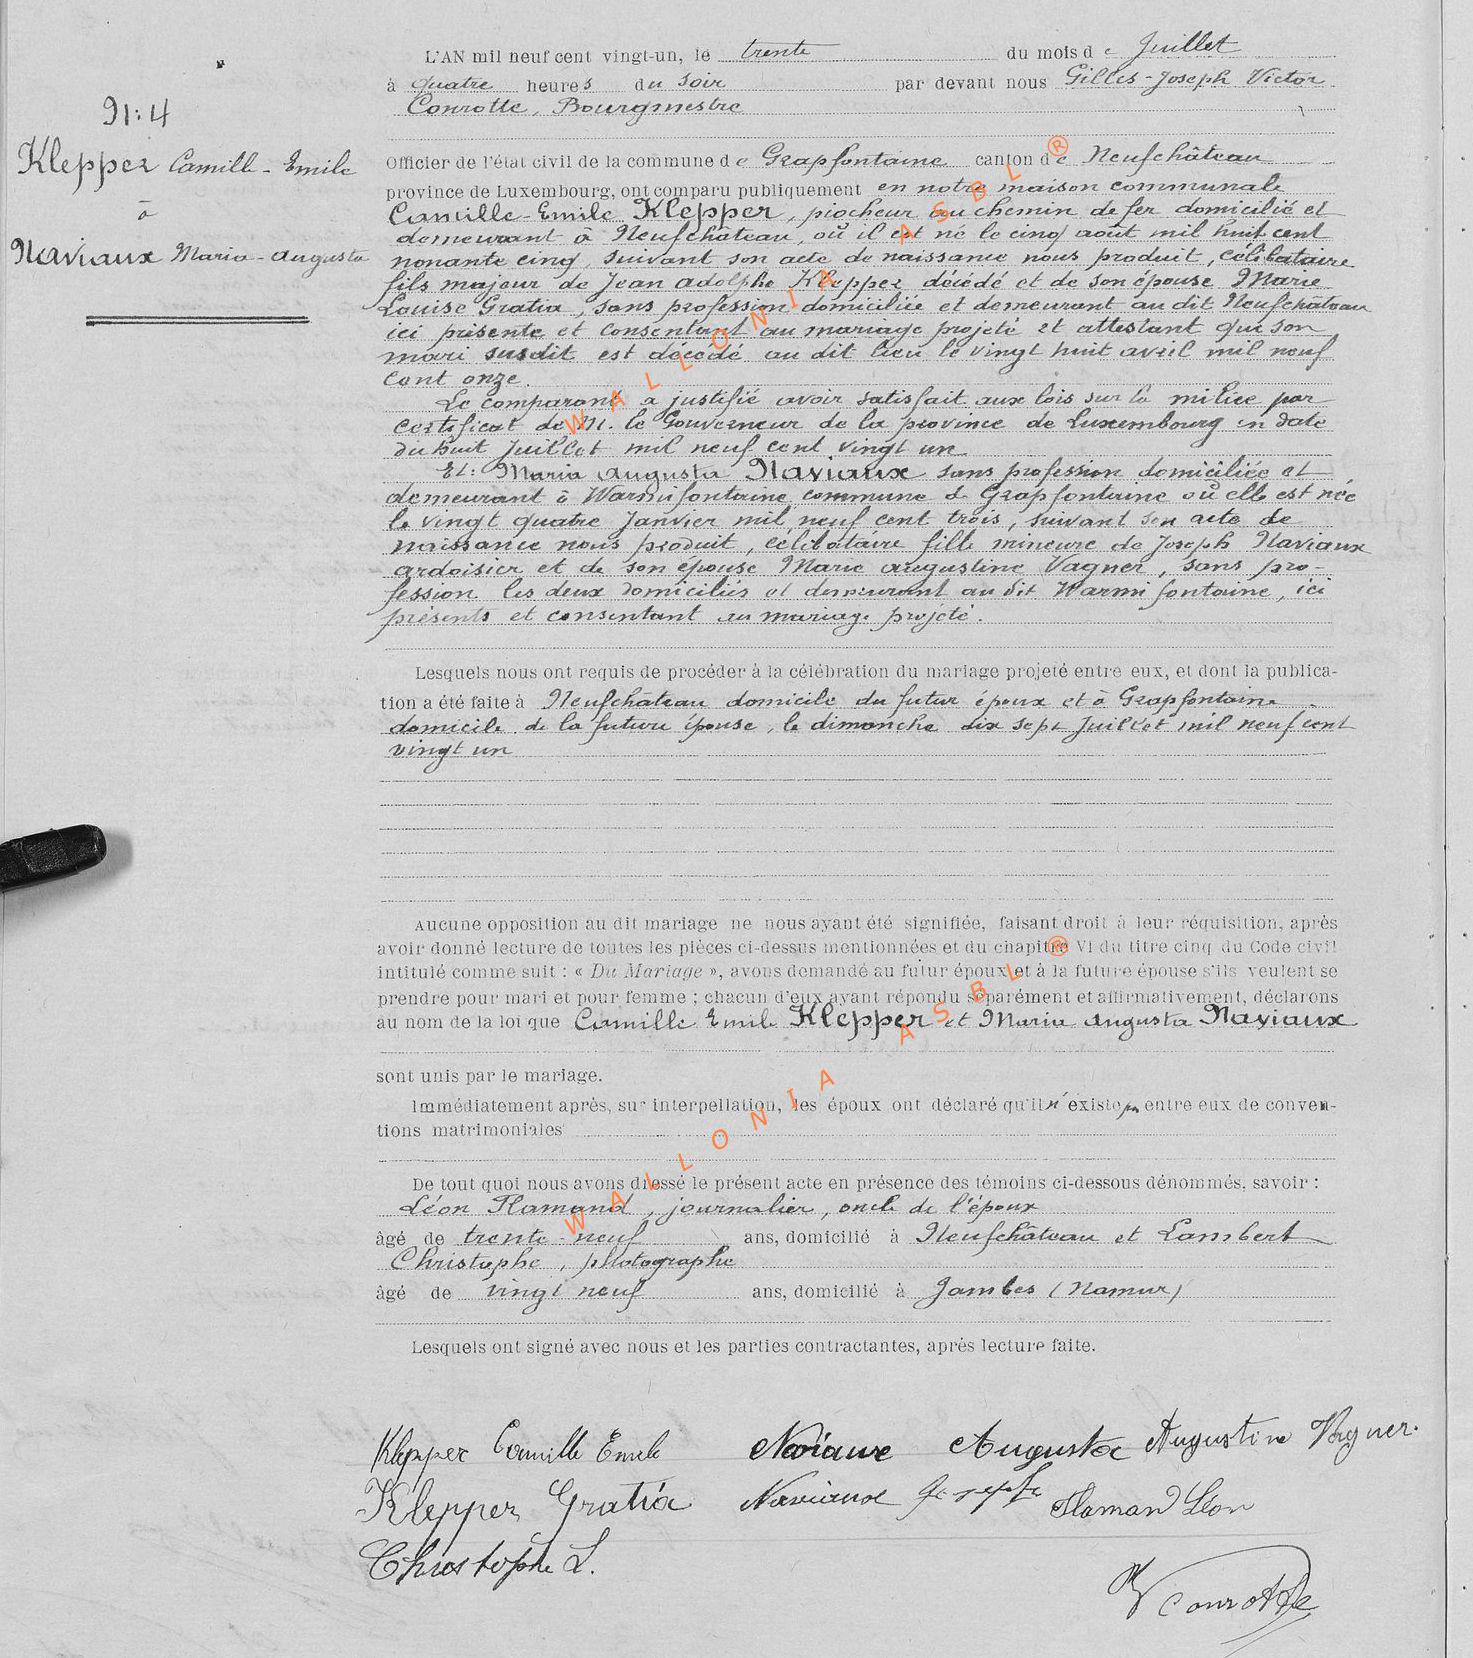 L'AN mil neuf cent vingt-un, le trente du mois de Juillet
à quatre heures du soir par devant nous Gilles-Joseph Victor
Conrotte, Bourgmestre
N: 4
Klepper Camille-Emile
à
Naviaux Maria-Augusta
Officier de l'état civil de la commune de Grapfontaine canton de Neufchâteau
province de Luxembourg, ont comparu publiquement en notre maison communale
Camille-Emile Klepper, piocheur au chemin de fer domicilié et
demeurant à Neufchâteau, où il est né le cinq août mil huit cent
nonante cinq, suivant son acte de naissance nous produit, célibataire
fils majeur de Jean Adolphe Klepper décédé et de son épouse Marie
Louise Gratia, sans profession domiciliée et demeurant au dit Neufchâteau
ici présente et consentant au mariage projeté et attestant que son
mari susdit est décédé au dit lieu le vingt huit avril mil neuf
cent onze.
Le comparant a justifié avoir satisfait aux lois sur la milice par
certificat de M. le Gouverneur de la province de Luxembourg en date
du huit Juillet mil neuf cent vingt un
Et: Maria Augusta Naviaux sans profession domiciliée et
demeurant à Warmifontaine commune de Grapfontaine où elle est née
le vingt quatre Janvier mil neuf cent trois, suivant son acte de
naissance nous produit, célibataire fille mineure de Joseph Naviaux
ardoisier et de son épouse Marie Augustine Vagner, sans pro-
fession les deux domiciliés et demeurant au dit Warmifontaine, ici
présents et consentant au mariage projeté.
Lesquels nous ont requis de procéder à la célébration du mariage projeté entre eux, et dont la publica-
tion a été faite à Neufchâteau domicile du futur époux et à Grapfontaine
domicile de la future épouse, le dimanche dix sept Juillet mil neuf cent
vingt un
Aucune opposition au dit mariage ne nous ayant été signifiée, faisant droit à leur réquisition, après
avoir donné lecture de toutes les pièces ci-dessus mentionnées et du chapitre VI du titre cinq du Code civil
intitulé comme suit : « Du Mariage », avons demandé au futur époux et à la future épouse s'ils veulent se
prendre pour mari et pour femme ; chacun d'eux ayant répondu séparément et affirmativement, déclarons
au nom de la loi que Camille Emile Klepper et Maria Augusta Naviaux
sont unis par le mariage.
Immédiatement après, sur interpellation, les époux ont déclaré qu'il n'existe pas entre eux de conven-
tions matrimoniales
De tout quoi nous avons dressé le présent acte en présence des témoins ci-dessous dénommés, savoir :
Léon Flamand, journalier, oncle de l'époux
âgé de trente-neuf ans, domicilié à Neufchâteau et Lambert
Christophe, photographe
âgé de vingt neuf ans, domicilié à Jambes (Namur)
Lesquels ont signé avec nous et les parties contractantes, après lecture faite.
Klepper Camille Emile Naviaux Augusta Augustine Vagner.
Klepper Gratia Naviaux Joseph Flamand Léon
Christophe L.
V Conrotte
WALLONIA ASBL ®
WALLONIA ASBL ®